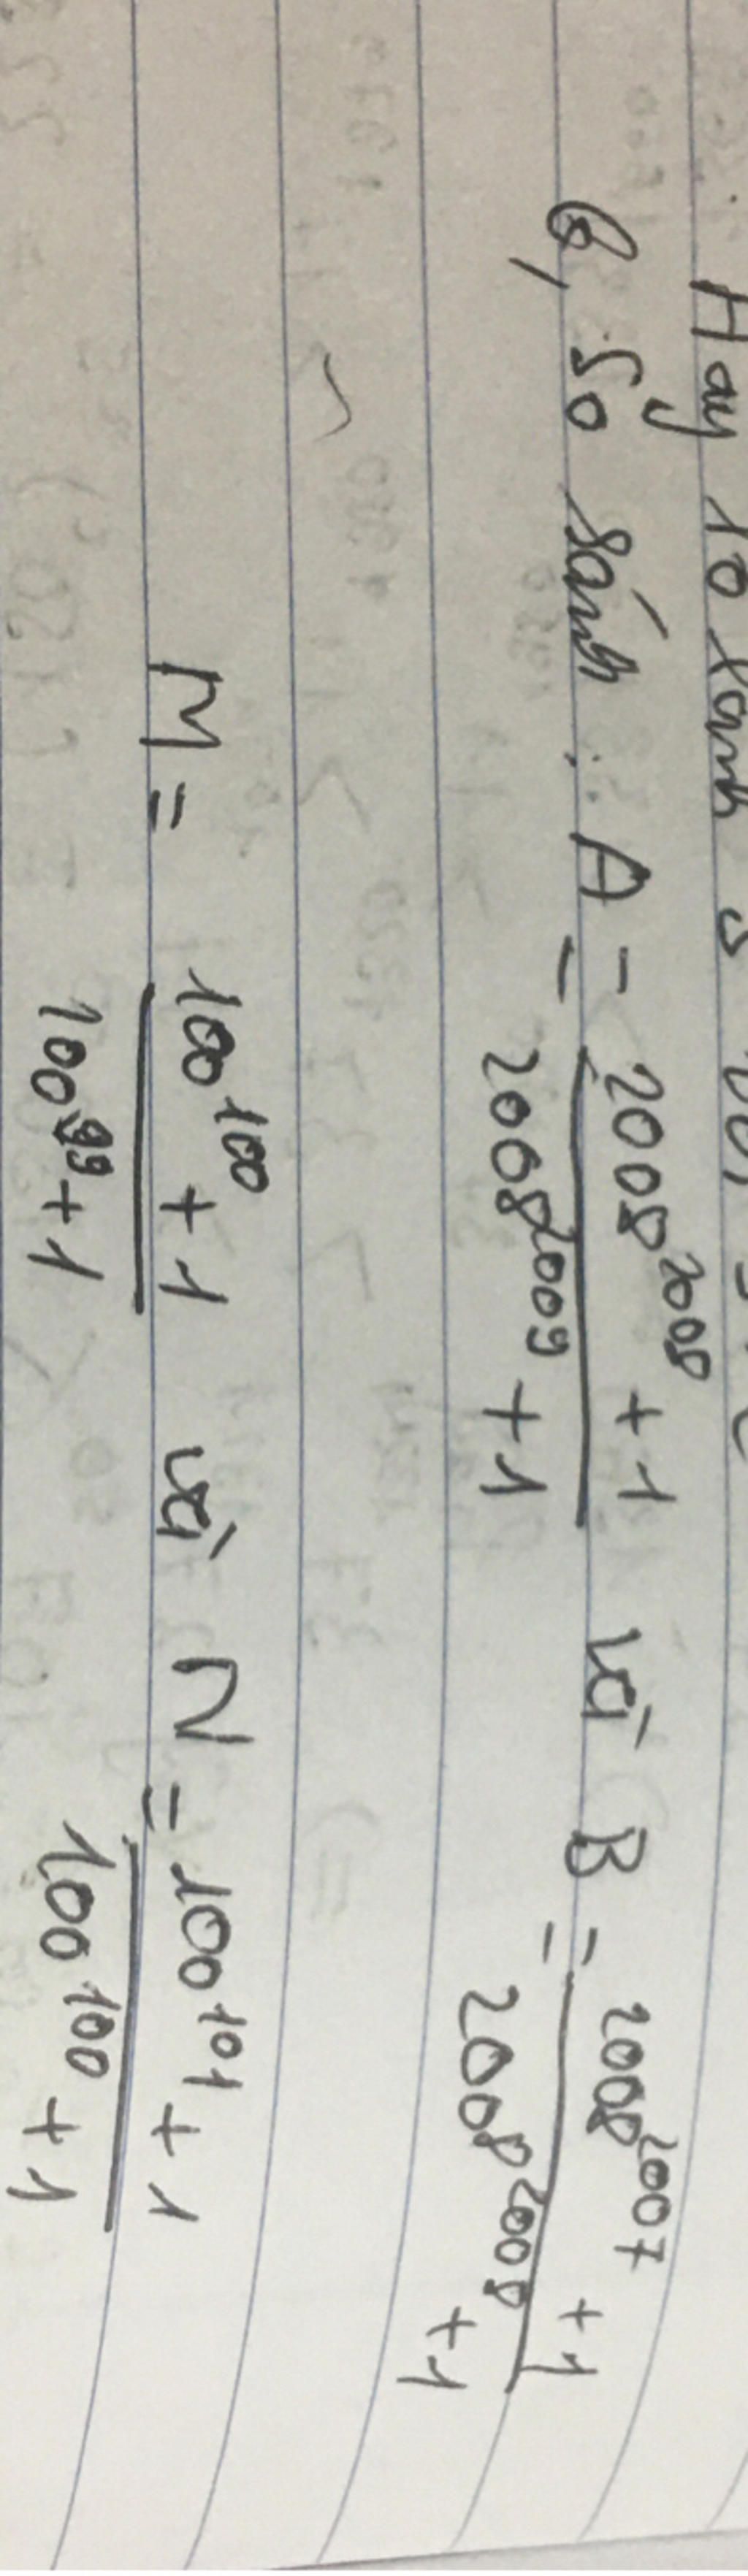 Hãy so sánh
b, So sánh: A = \frac{2008^{2008} + 1}{2008^{2009} + 1} và B = \frac{2008^{2007} + 1}{2008^{2008} + 1}
M = \frac{100^{100} + 1}{100^{99} + 1} và N = \frac{100^{101} + 1}{100^{100} + 1}